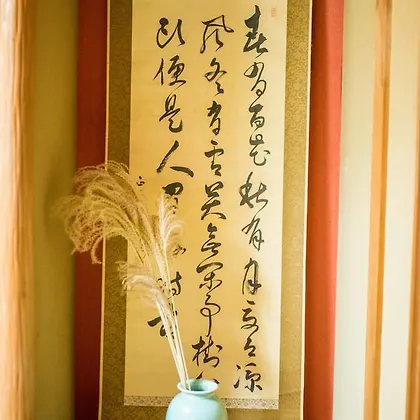 春有百花秋有月夏有涼
風冬有雪若無閑事掛
頭便是人間時節